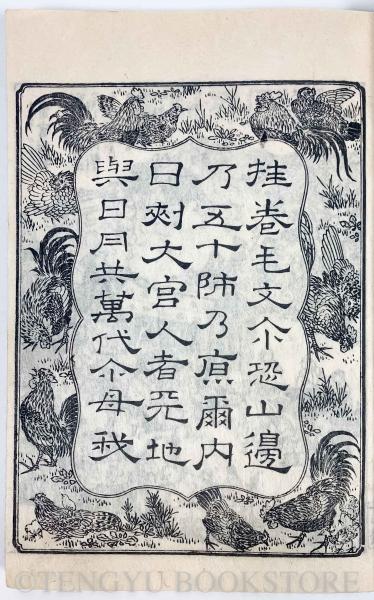 挂卷毛文尒恐山邊
乃五十師乃原爾内
日刺大宮人者天地
與日月共萬代尒母我
©TENGYU BOOKSTORE